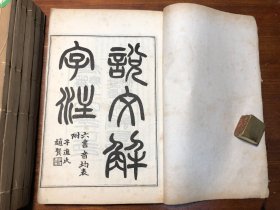 說文解
字注
附六書音均表